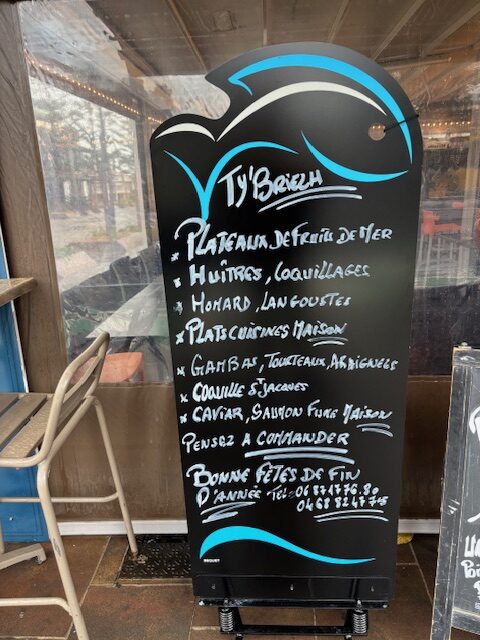 Ty'Breizh
* Plateaux de Fruits de Mer
* Huîtres, Coquillages
* Homard, Langoustes
* Plats Cuisines Maison
* Gambas, Tourteaux, Araignées
* Coquille St Jacques
* Caviar, Saumon Fumé Maison
Pensez a Commander
Bonne Fêtes de Fin
D'Année Tel: 06 87 17 76 80
04 68 82 47 75